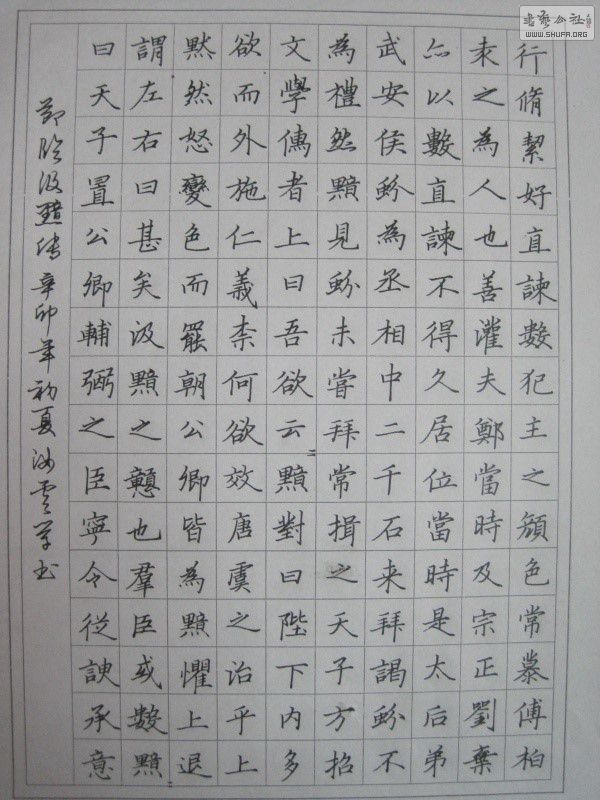 書藝公社
WWW.SHUFA.ORG
行脩絜好直諫數犯主之顏色常慕傅柏
袁之為人也善灌夫鄭當時及宗正劉棄
亦以數直諫不得久居位當時是太后弟
武安侯蚡為丞相中二千石来拜謁蚡不
為禮然黯見蚡未嘗拜常揖之天子方招
文學儒者上曰吾欲云〻黯對曰陛下内多
欲而外施仁義柰何欲效唐虞之治乎上
默然怒變色而罷朝公卿皆為黯懼上退
謂左右曰甚矣汲黯之戇也羣臣或數黯
曰天子置公卿輔弼之臣寧令從諛承意
節臨汲黯傳辛卯年初夏